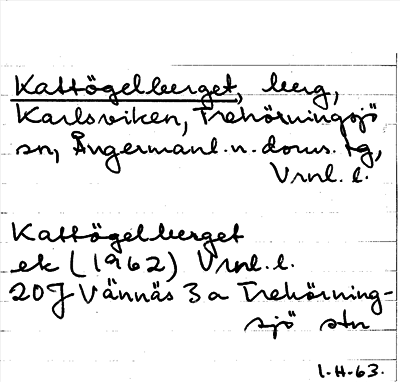 Kattögelberget, berg,
Karlsviken, Trehörningsjö
sn, Ångermanl.n. doms. tg,
Vrnl. l.
Kattögelberget
ek (1962) Vrnl. l.
20J Vännäs 3a Trehörning-
sjö stn
1-H-63.